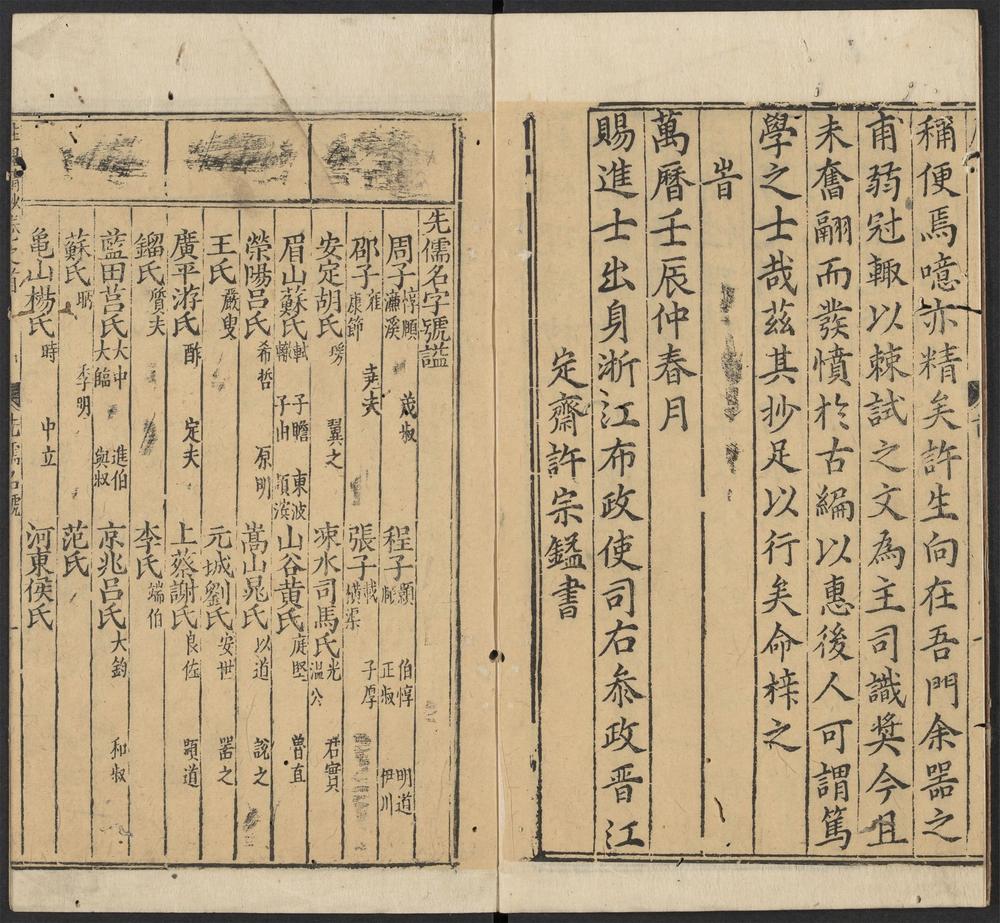 稱便焉噫亦精矣許生向在吾門余器之
甫弱冠輙以棘試之文為主司識奬今且
未奮翮而發憤於古編以惠後人可謂篤
學之士哉茲其抄足以行矣命梓之
旹
萬曆壬辰仲春月
賜進士出身浙江布政使司右叅政晉江
定齋許宗鎰書
先儒名字號謚
周子 惇頤 濂溪 茂叔 程子 顥 頤 伯惇 正叔 明道 伊川
邵子 雍 康節 堯夫 張子 載 橫渠 子厚
安定胡氏 瑗 翼之 涑水司馬氏 光 溫公 君實
眉山蘇氏 軾 轍 子瞻 子由 東坡 潁濱 山谷黃氏 庭堅 魯直
榮陽呂氏 希哲 原明 嵩山晁氏 以道 說之
王氏 嚴叟 元城劉氏 安世 器之
廣平游氏 酢 定夫 上蔡謝氏 良佐 顯道
鎦氏 質夫 李氏 端伯
藍田呂氏 大中 大臨 進伯 與叔 京兆呂氏 大鈞 和叔
蘇氏 昞 季明 范氏
龜山楊氏 時 中立 河東侯氏
先儒名號